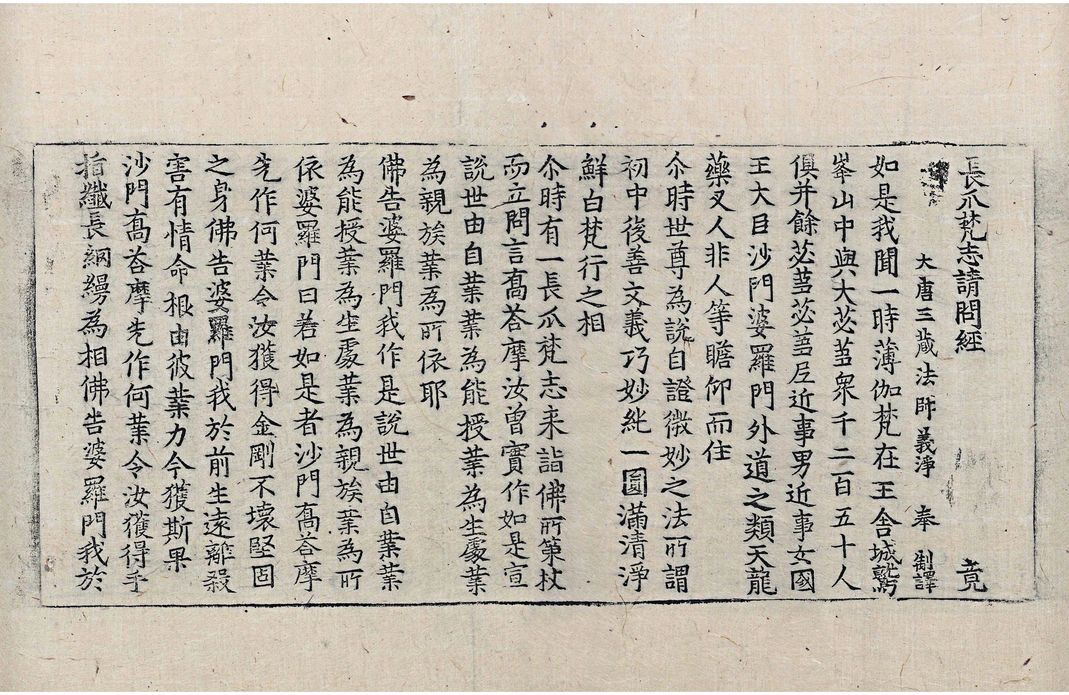 長爪梵志請問經 竟
大唐三藏法師義淨 奉 制譯
如是我聞一時薄伽梵在王舍城鷲
峯山中與大苾芻衆千二百五十人
俱并餘苾芻苾芻尼近事男近事女國
王大臣沙門婆羅門外道之類天龍
藥叉人非人等瞻仰而住
尒時世尊為說自證微妙之法所謂
初中後善文義巧妙純一圓滿清淨
鮮白梵行之相
尒時有一長爪梵志来詣佛所策杖
而立問言喬荅摩汝曾實作如是宣
說世由自業業為能授業為生處業
為親族業為所依耶
佛告婆羅門我作是說世由自業業
為能授業為生處業為親族業為所
依婆羅門曰若如是者沙門喬荅摩
先作何業令汝獲得金剛不壞堅固
之身佛告婆羅門我於前生遠離殺
害有情命根由彼業力今獲斯果
沙門喬荅摩先作何業令汝獲得手
指纖長網縵為相佛告婆羅門我於